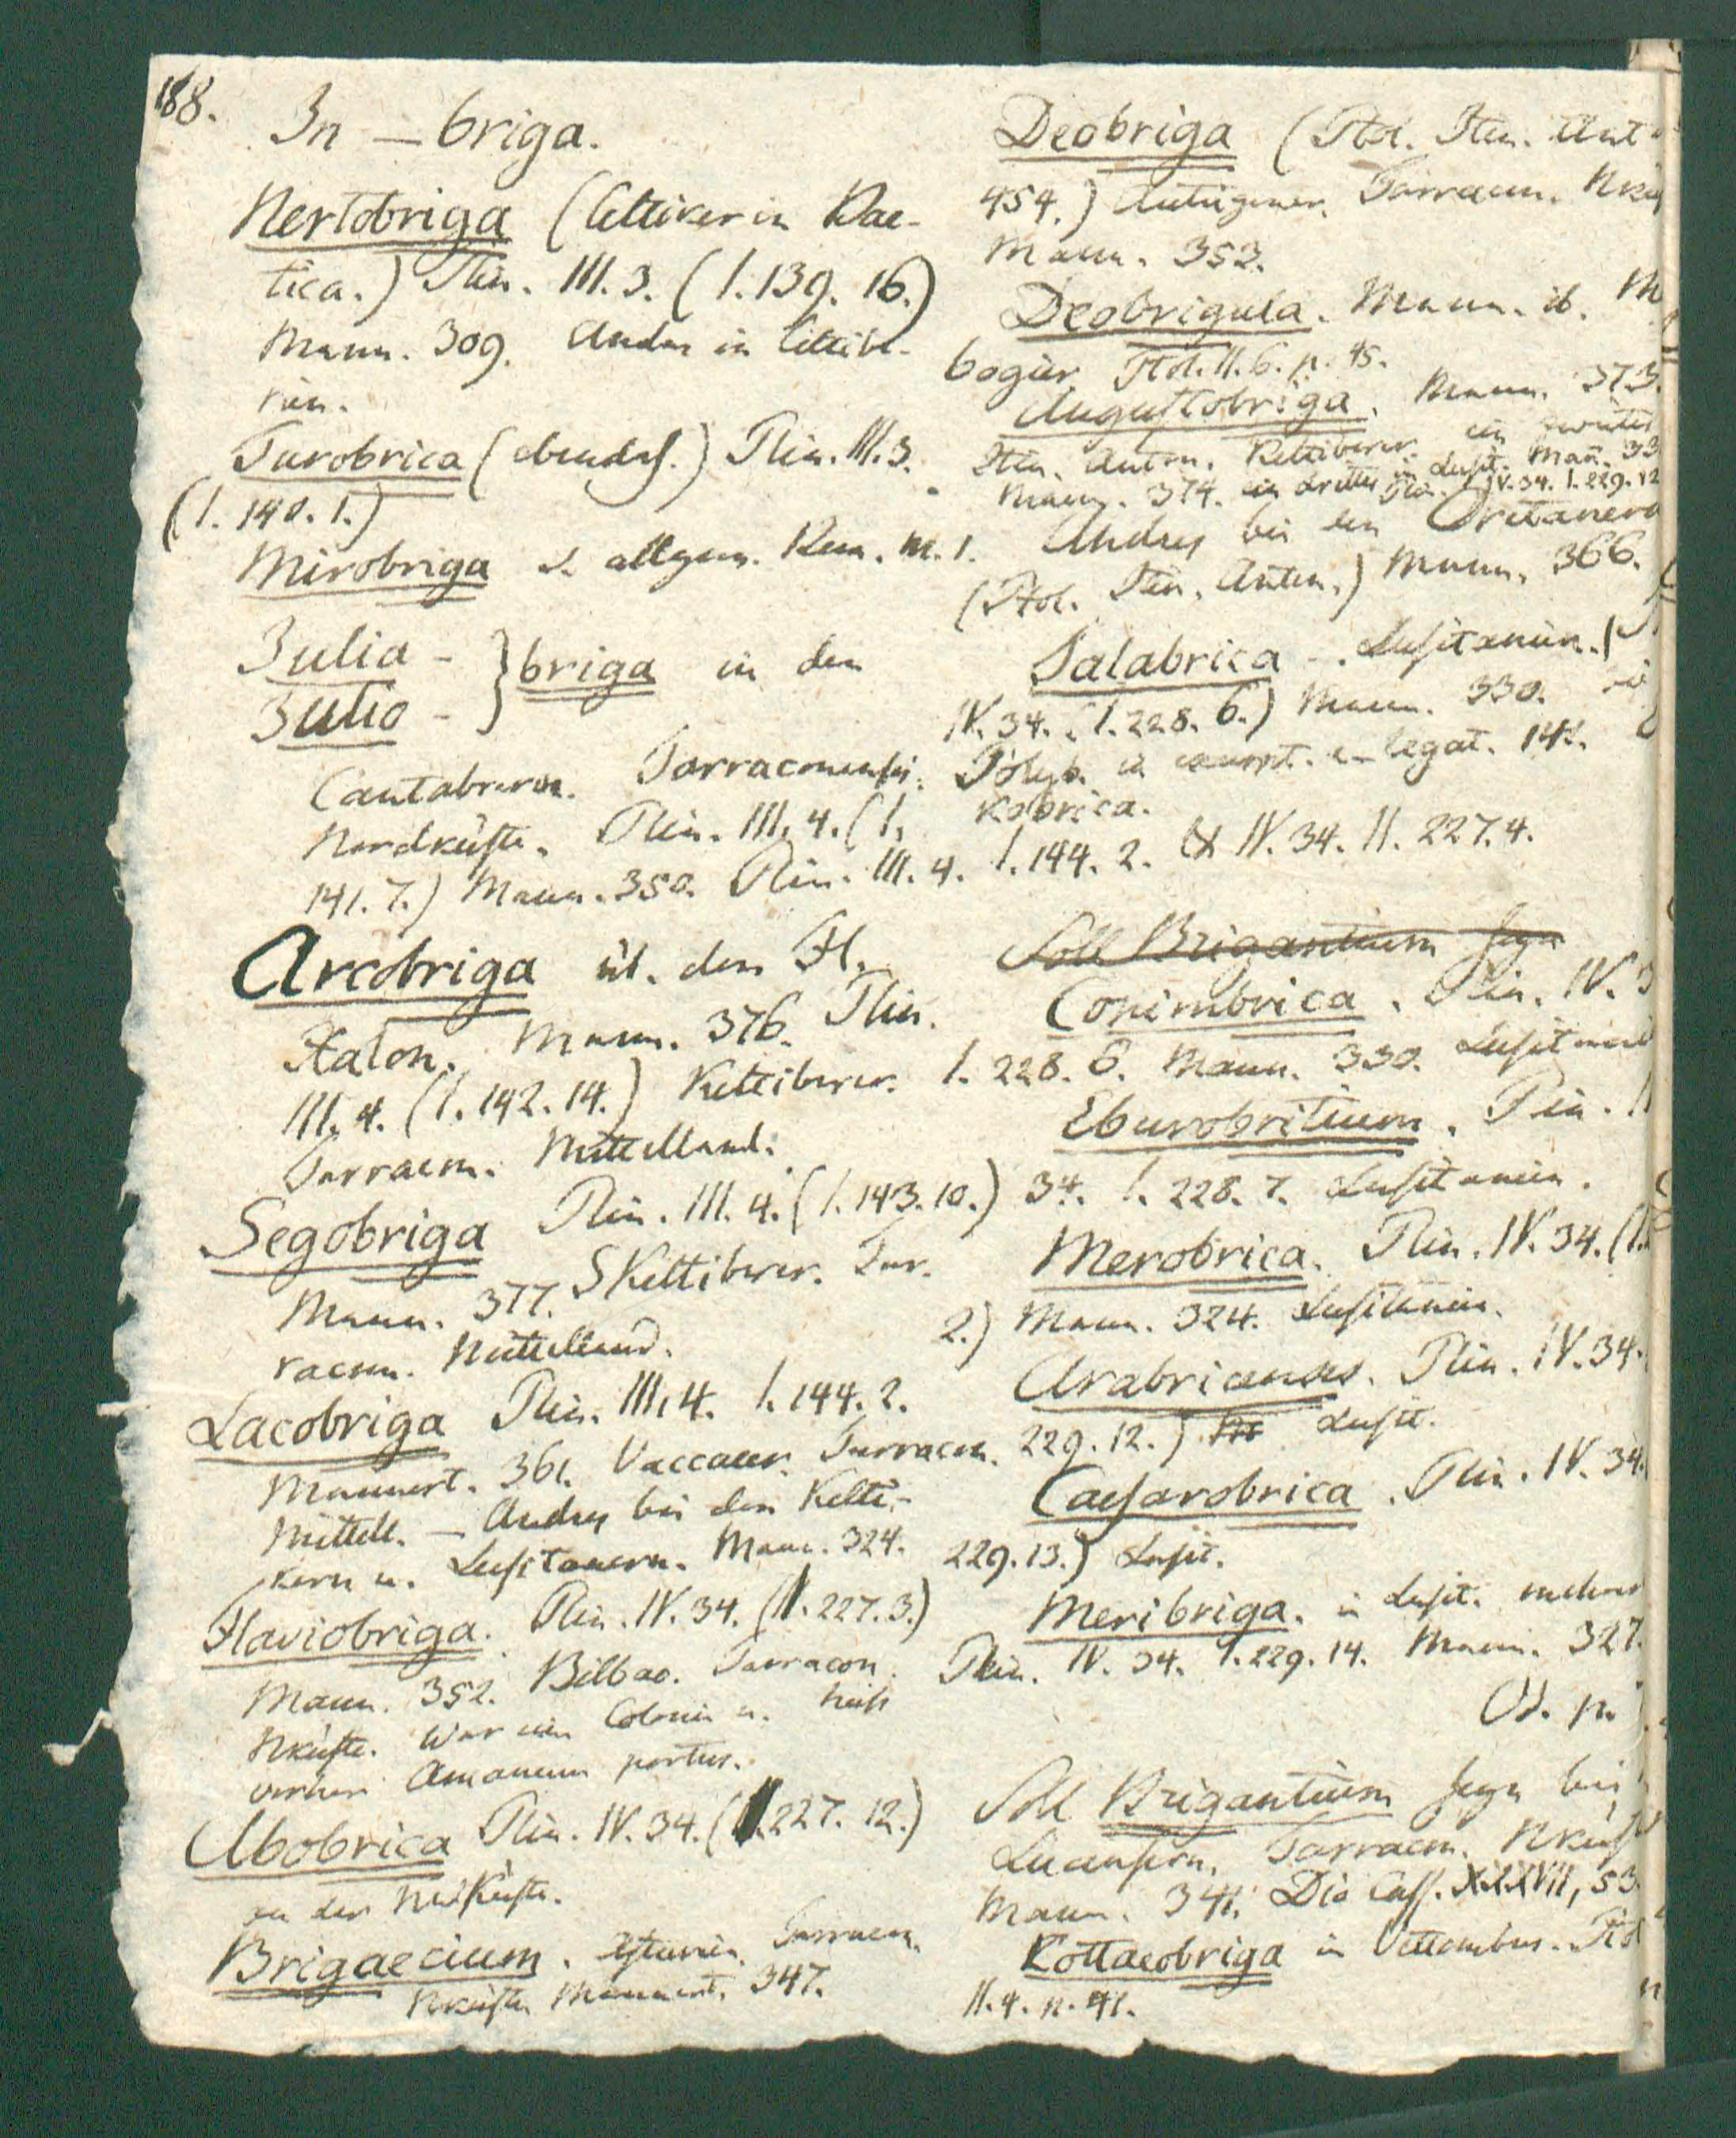 168.
In – briga.
Nertobriga (Celtiker in Bae-
tica.) Plin. III. 3. (I. 139. 16.)
Mann. 309. Andres in Celtibe-
rien.
Turobrica (ebendas.) Plin. III. 3.
(I. 140. 1.)
Mirobriga s. allgem. Bem. n. 1.
Julia - } briga in den
Julio -
Cantabrern. Tarraconensis.
Nordküste. Plin. III. 4. (I.
141. 7.) Mann. 350. Plin. III. 4. I. 144. 2. & IV. 34. II. 227. 4.
Arcobriga üb. dem Fl.
Xalon. Mann. 376. Plin.
III. 4. (I. 142. 14.) Keltiberer.
Tarracon. Mittelland.
Segobriga Plin. III. 4. (I. 143. 10.)
Mann. 377. SKeltiberer. Tar-
racon. Mittelland.
Lacobriga Plin. III. 4. I. 144. 2.
Mannert. 361. Vaccaeer. Tarracon.
Mittell. – Andres bei den Kelti-
kern u. Lusitanern. Mann. 324.
Flaviobriga. Plin. IV. 34. (II. 227. 3.)
Mann. 352. Bilbao. Tarracon.
Nküste. War eine Colonie u. hieß
vorher Amanum portus.
Abobrica Plin. IV. 34. (I. 227. 12.)
an der NWKüste.
Brigaecium. Asturien. Tarracon.
Nküste Mannert. 347.
Deobriga (Ptol. Itin. Ant
454.) Autrigoner. Tarracon. Nkü
Mann. 353.
Deobrigula. Mann. ib. M
bogier Ptol. II. 6. p. 45.
Augustobriga. Mann. 373.
Itin. Anton. Keltiberer. ein zweites
Mann. 374. ein drittes in Lusit. Mañ. 33
Plin. IV. 34. I. 229. 12
Andres bei den Oretanern
(Ptol. Itin. Anton.) Mann. 366.
Talabrica. Lusitanien. (
IV. 34. (I. 228. 6.) Mann. 330.
Polyb. in excerpt. legat. 141.
kobrica.
Soll Brigantium seyn
Conimbrica. Plin. IV. 3
I. 228. 6. Mann. 330. Lusitani
Eburobritium. Plin. I
34. I. 228. 7. Lusitanien.
Merobrica. Plin. IV. 34. (I.
2.) Mann. 324. Lusitanien.
Arabricenses. Plin. IV. 34.
229. 12.) Lusit.
Caesarobrica. Plin. IV. 34.
229. 13.) Lusit.
Meribriga. in Lusit. mehrere
Plin. IV. 34. I. 229. 14. Mann. 327.
Cf. p.
Soll Brigantium seyn bei
Lucensern. Tarracon. Nküst
Mann. 341. Dio Cass. XXXVII, 53.
Kottaeobriga in Vettonibus. Ptol
II. 4. p. 41.